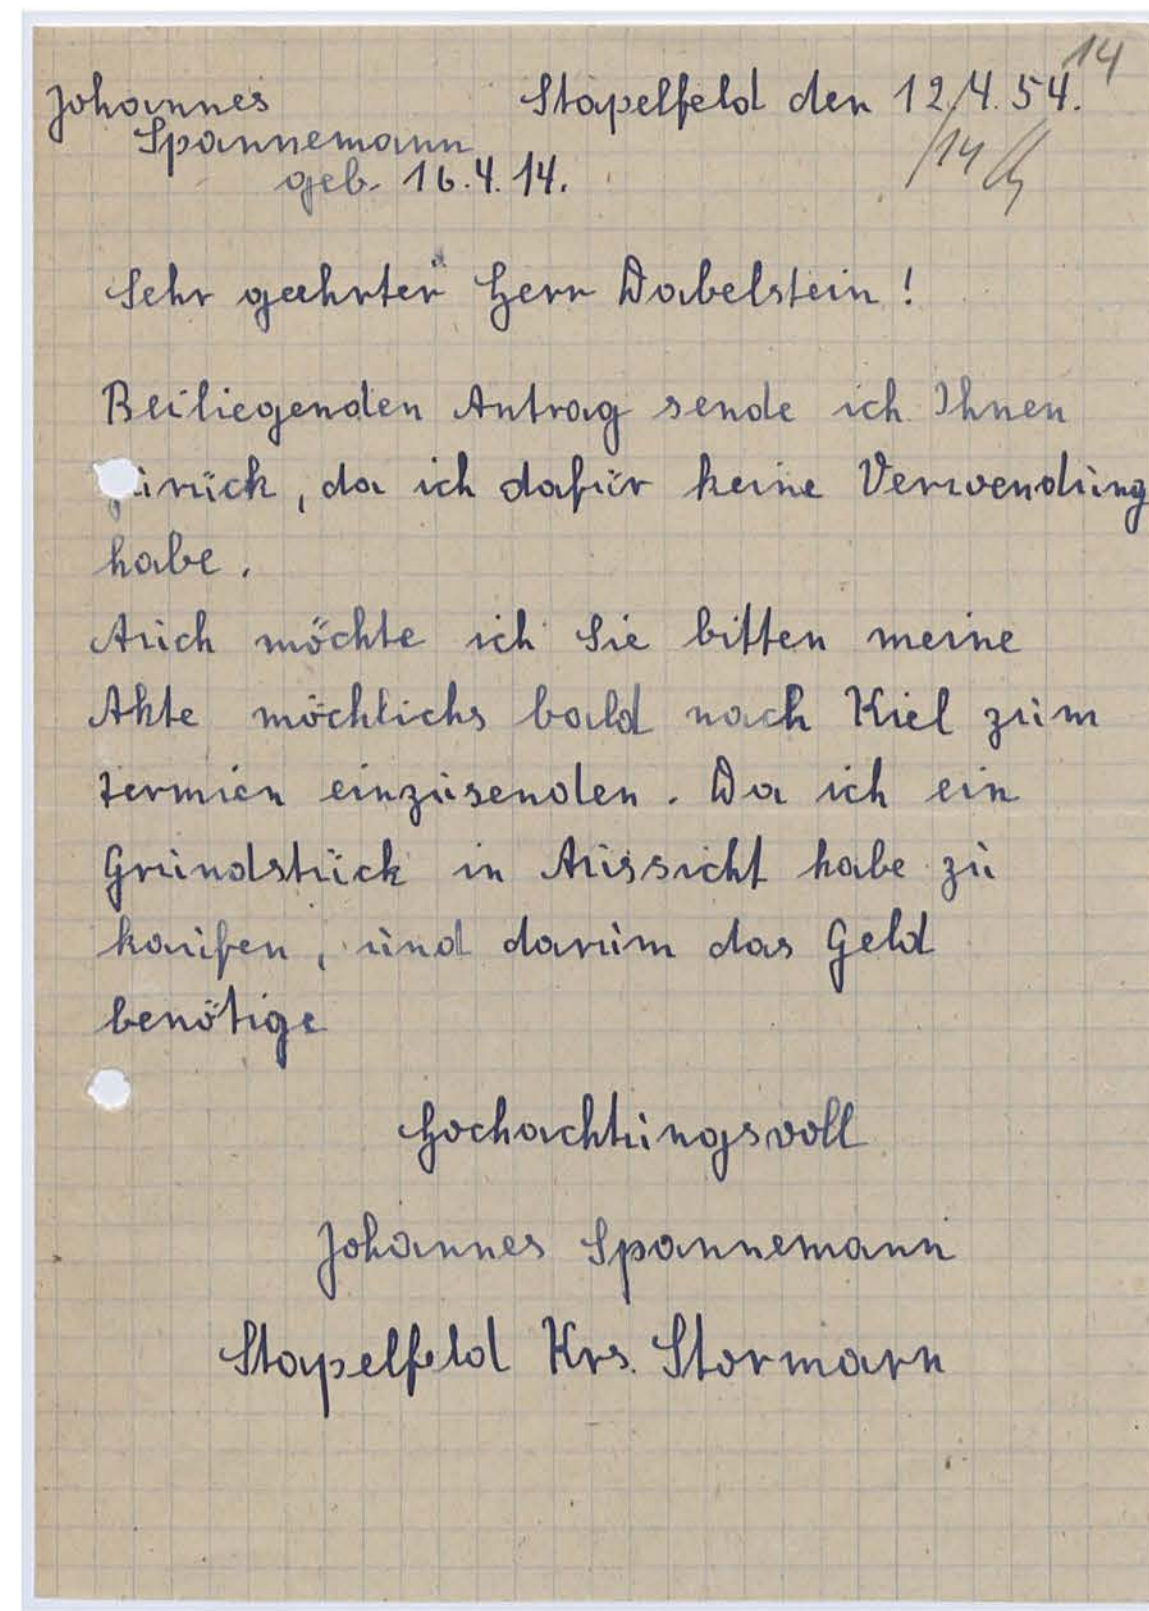 14
Johannes Stapelfeld den 12.4.54.
Spannemann
geb. 16.4.14. /14
Sehr geehrter Herr Dabelstein!
Beiliegenden Antrag sende ich Ihnen
zurück, da ich dafür keine Verwendung
habe.
Auch möchte ich Sie bitten meine
Akte möchlichs bald nach Kiel zum
termien einzusenden. Da ich ein
Grundstück in Aussicht habe zu
kaufen, und darum das Geld
benötige
Hochachtungsvoll
Johannes Spannemann
Stapelfeld Krs. Stormarn